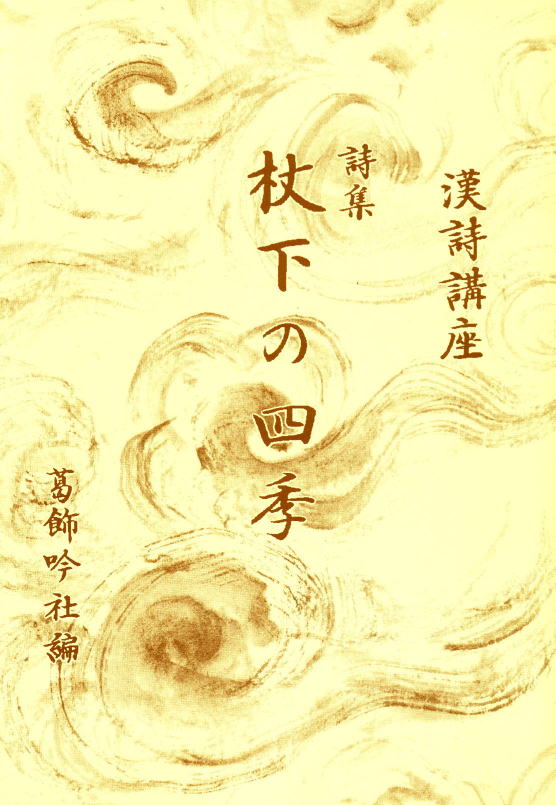 漢詩講座
詩集
杖下の四季
葛飾吟社編